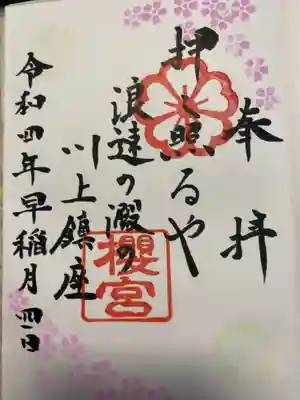 奉拝
押し照るや
浪速の澱の
川上鎮座
櫻宮
令和四年早稲月四日